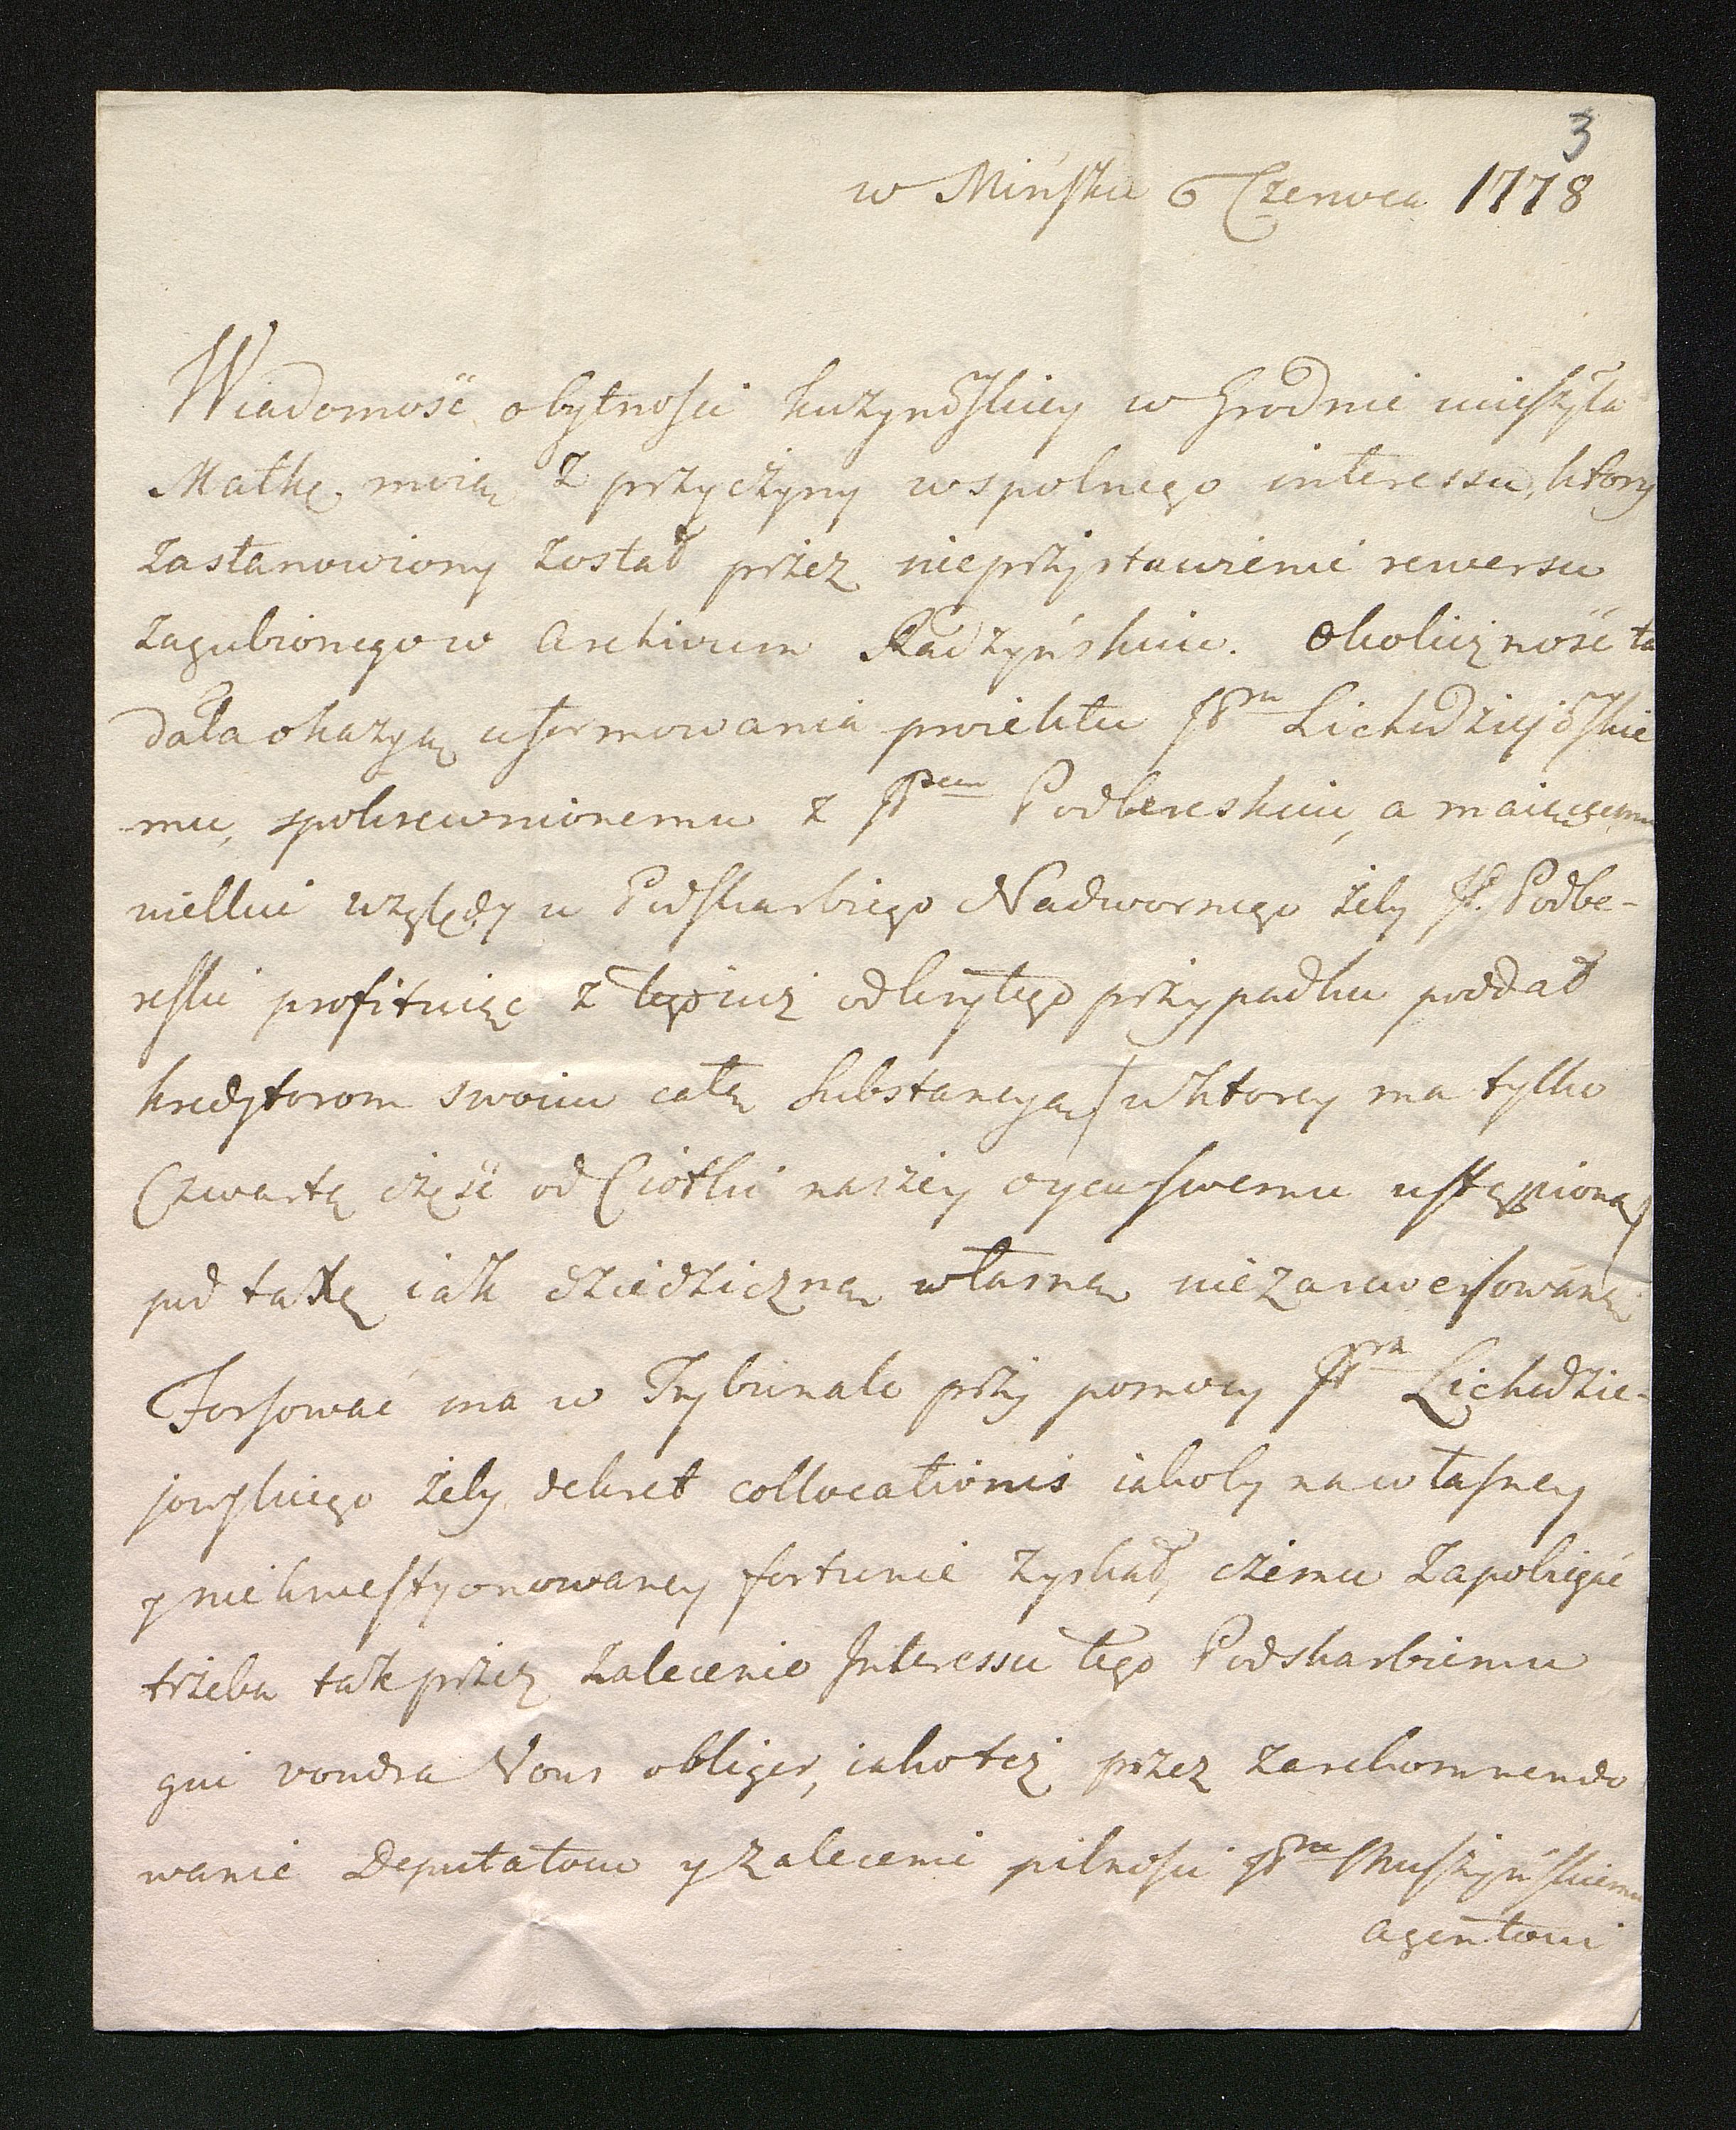 3
w Mińsku 6 Czerwca 1778
Wiadomość o bytnosci kuzynoskiey w Grodnie ucieszyła
Matkę moią z przyczyny wspolnego interessu, ktory
zastanowiony został przez nieprzystawienie rewersu
zagubionego w Archivum Radzyńskim. Okoliczność ta
dała okazyą uformowania proiektu JPnu Lichodziejoskie
mu, spokrewnionemu z JPem Podbereskim, a maiącemu
wielkie względy u Podskarbiego Nadwornego żeby JP. Podbe-
reski profituiąc z tego iuż odkrytego przypadku poddał
kredytorom swoim całą substancyą (w ktorey ma tylko
Czwartą część od Ciotki naszey oycu swemu ustąpioną)
pod taxę iak dziedziczną własną niezarewersowaną
Forsować ma w Trybunale przy pomocy JPna Lichodzie-
jowskiego żeby dekret collocationis iakoby na własney
y niekwestyonowaney fortunie zyskał, czemu zapobiegać
trzeba tak przez zalecenie Interessu tego Podskarbiemu
qui voudra Vous obliger, iako też przez zarekommendo
wanie Deputatom y zalecenie pilnosci JPnu
Agentowi